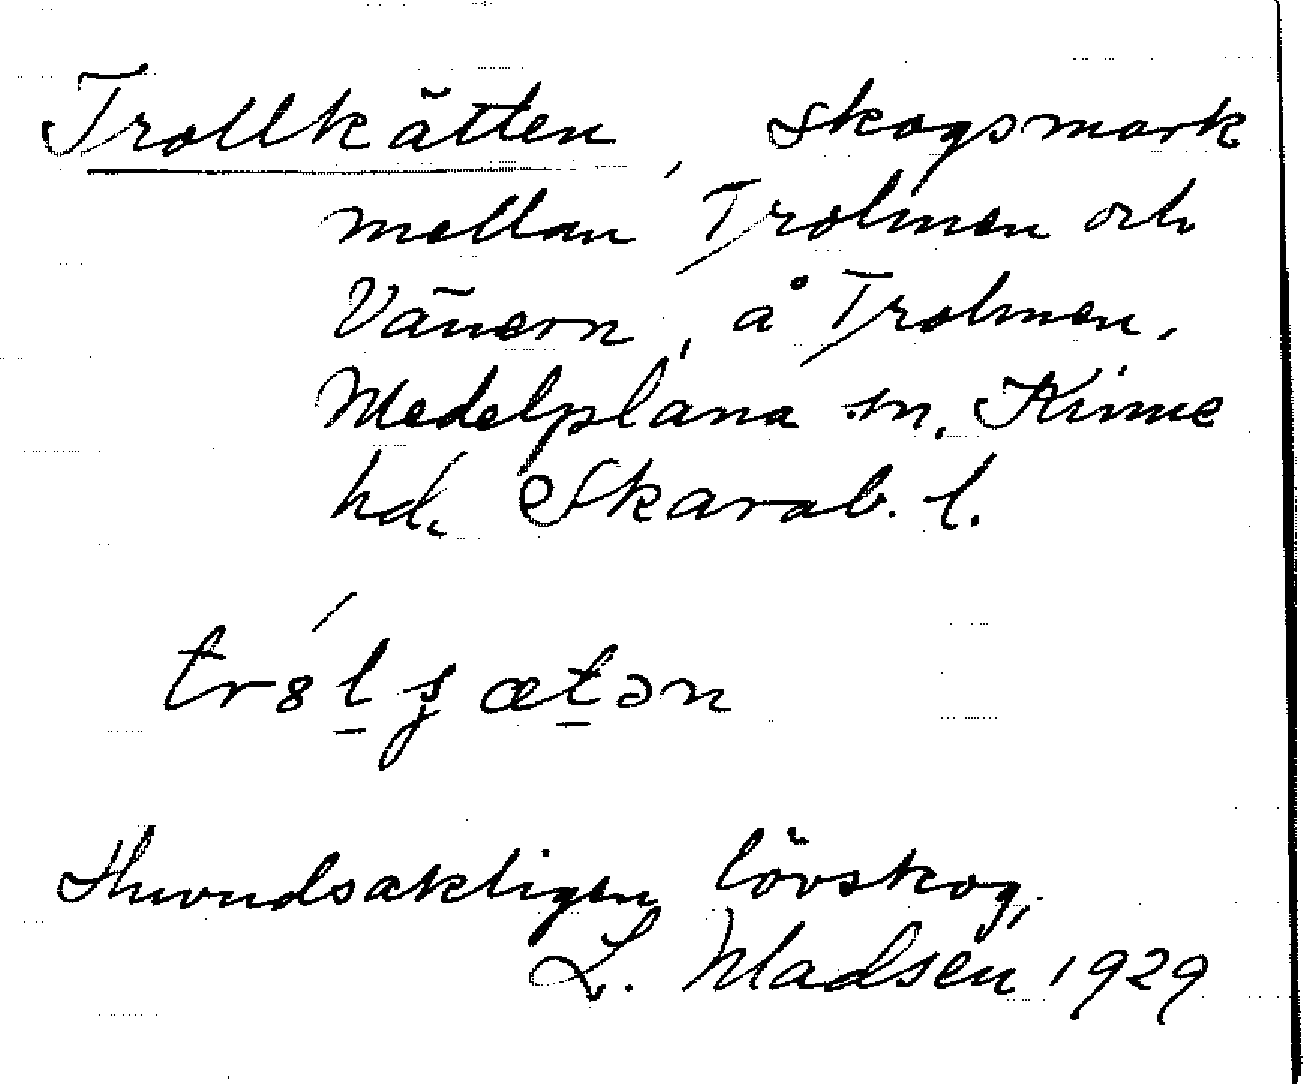 Trollkätten, skogsmark
mellan Trolmen och
Vänern, å Trolmen,
Medelplana sn, Kinne
hd. Skarab. l.
Huvudsakligen lövskog,
L. Madsén 1929